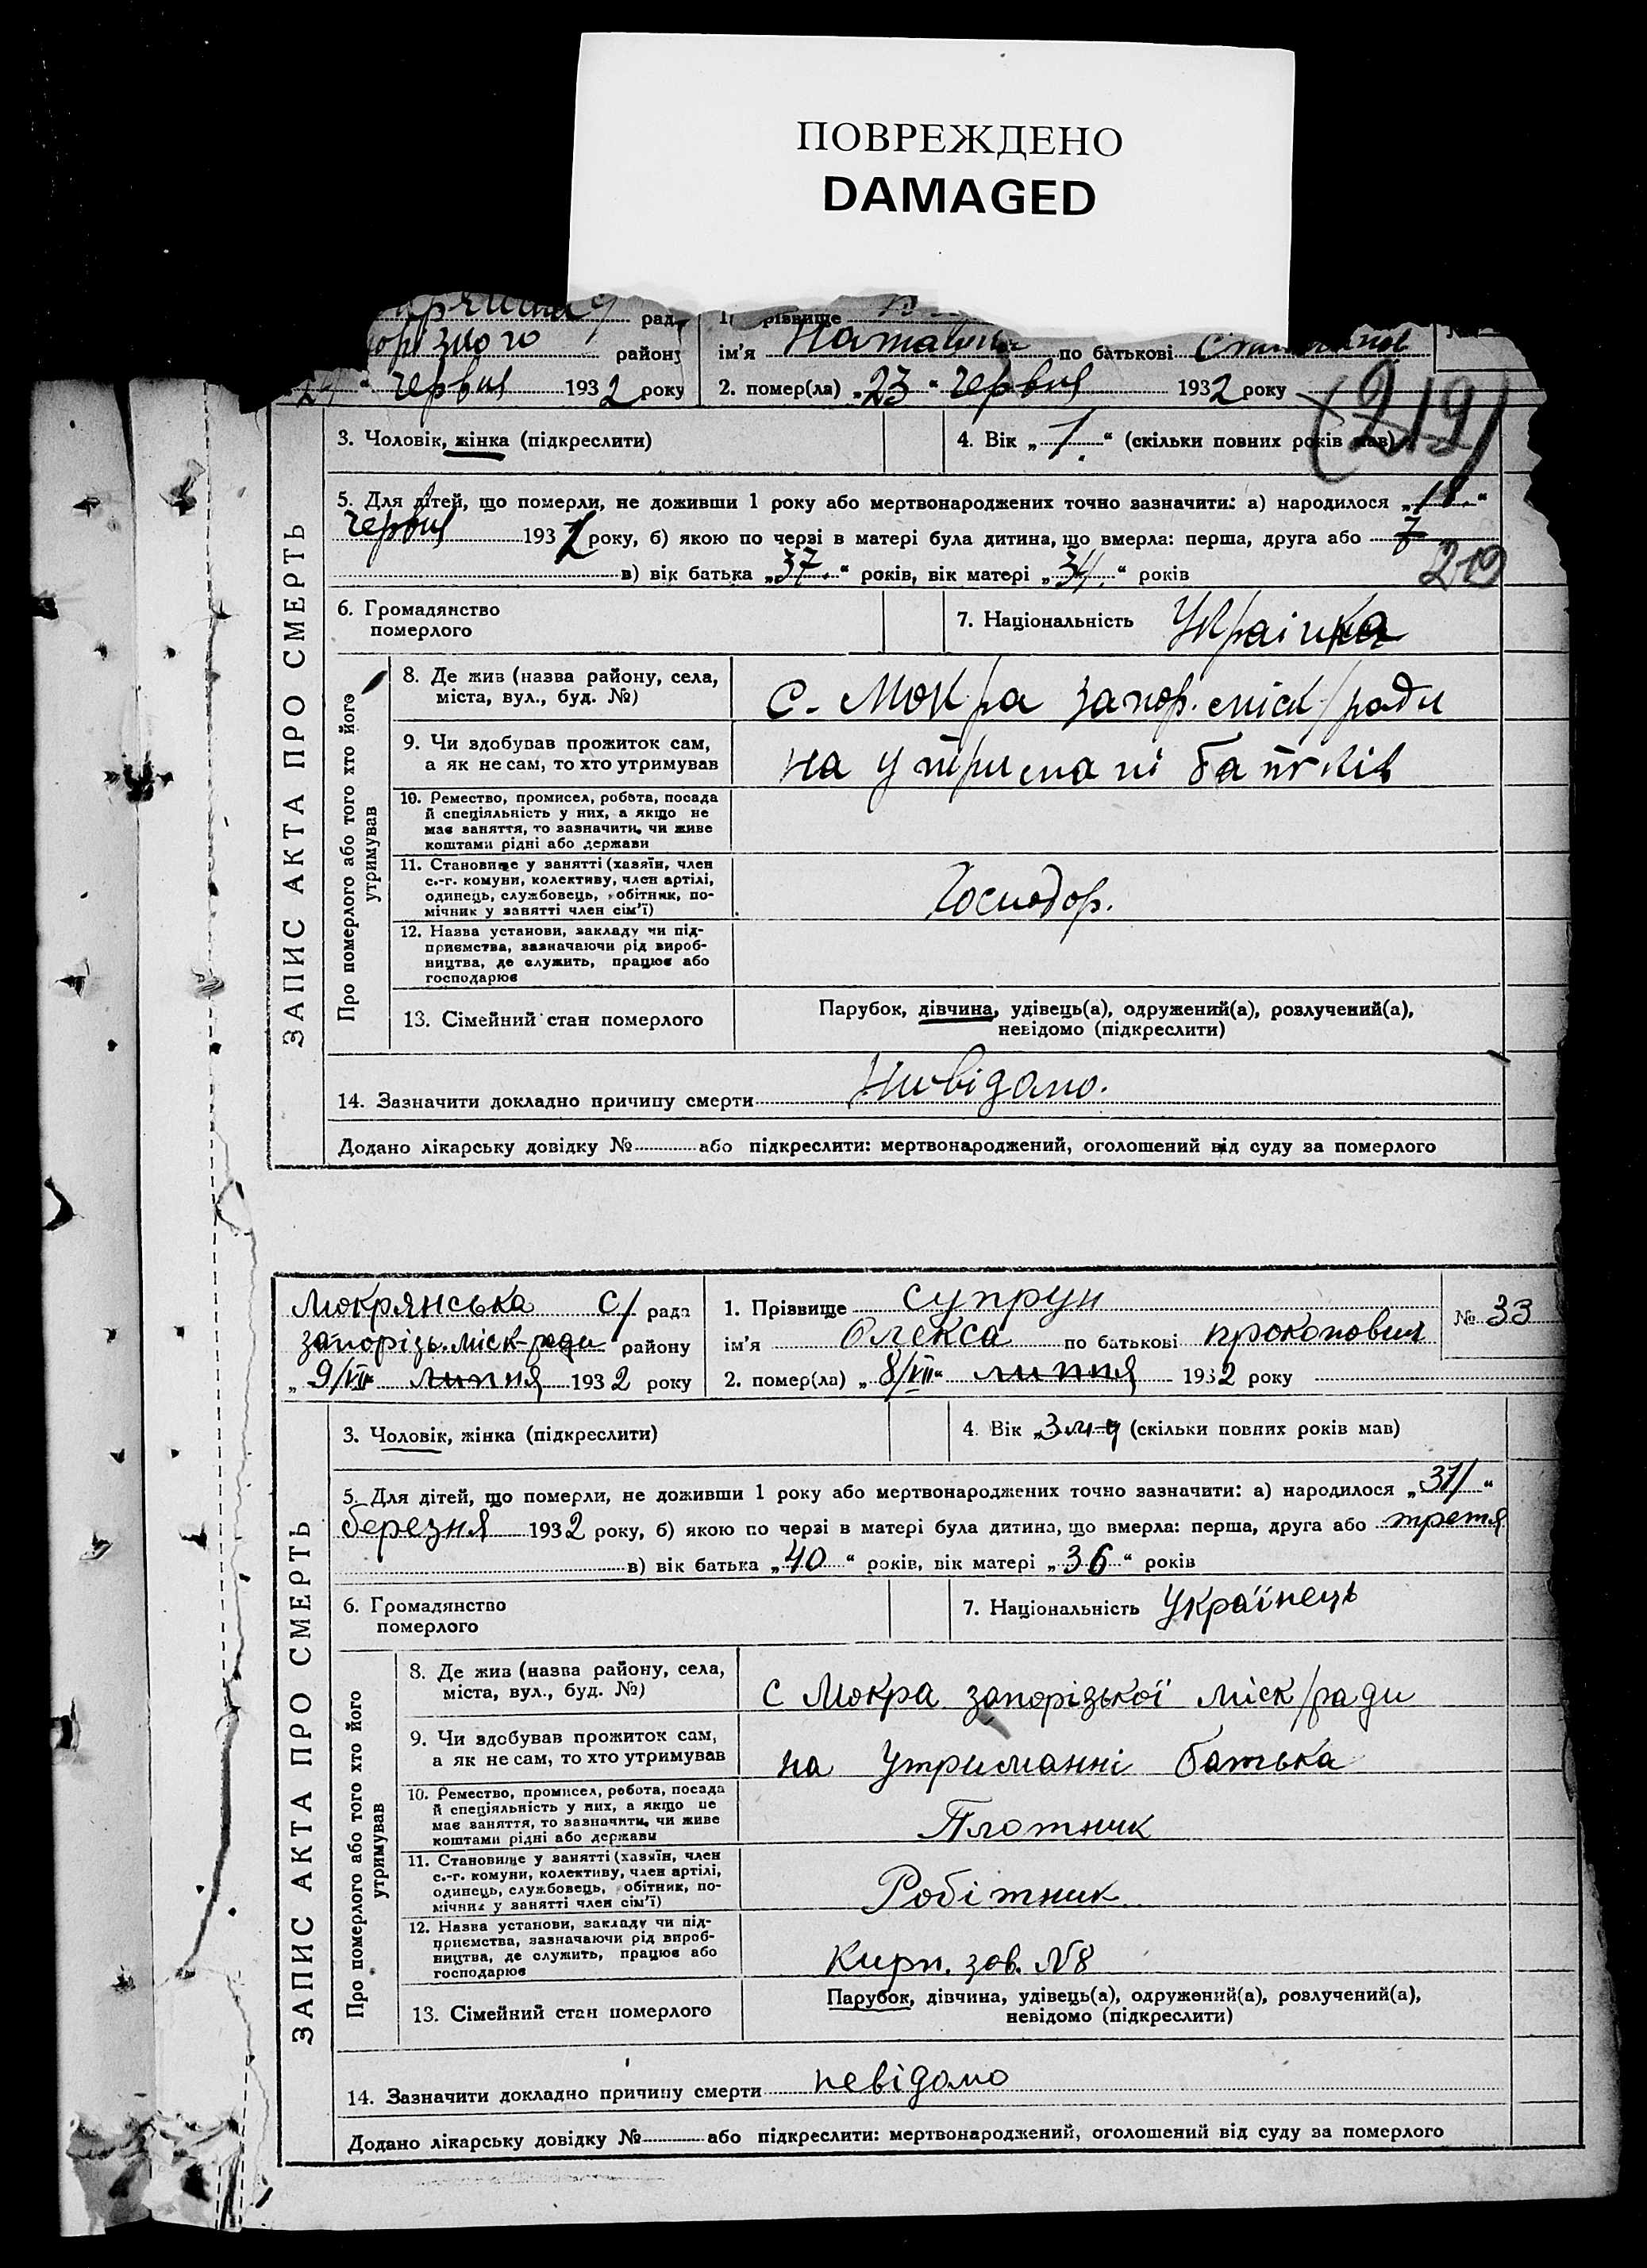 ПОВРЕЖДЕНО
DAMAGED
рад
1. Прізвище
району ім'я по батькові
червня 1932 року 2. помер(ла) „23“ червня 1932 року
(219)
3. Чоловік, жінка (підкреслити) 4. Вік „1.“ (скільки повних років мав)
5. Для дітей, що померли, не доживши 1 року або мертвонароджених точно зазначити: а) народилося
червня 193 року, б) якою по черзі в матері була дитина, що вмерла: перша, друга або 7
219
в) вік батька „37.“ років, вік матері „34.“ років
6. Громадянство померлого 7. Національність Українка
ЗАПИС АКТА ПРО СМЕРТЬ
Про померлого або того хто його утримував
8. Де жив (назва району, села,
міста, вул., буд. №)
С. Мокра запор. міск/ради
9. Чи здобував прожиток сам,
а як не сам, то хто утримував
на утримані батьків
10. Ремество, промисел, робота, посада
й спеціяльність у них, а якщо не
має заняття, то зазначити, чи живе
коштами рідні або держави
11. Становище у занятті (хазяїн, член
с.-г. комуни, колективу, член артілі,
одинець, службовець, обітник, по-
мічник у занятті член сім'ї)
Господор.
12. Назва установи, закладу чи під-
приємства, зазначаючи рід вироб-
ництва, де служить, працює або
господарює
13. Сімейний стан померлого
Парубок, дівчина, удівець(а), одружений(а), розлучений(а),
невідомо (підкреслити)
14. Зазначити докладно причину смерти Нивідомо.
Додано лікарську довідку № або підкреслити: мертвонароджений, оголошений від суду за померлого
Мокрянська С/ рада 1. Прізвище Супрун № 33
запорізь. міск-ради району ім'я Олекса по батькові прокопович
„9/VII“ липня 1932 року 2. помер(ла) „8/VII“ липня 1932 року
3. Чоловік, жінка (підкреслити) 4. Вік „3 м-ц (скільки повних років мав)
5. Для дітей, що померли, не доживши 1 року або мертвонароджених точно зазначити: а) народилося „31/“
березня 1932 року, б) якою по черзі в матері була дитина, що вмерла: перша, друга або третя
в) вік батька „40“ років, вік матері „36“ років
6. Громадянство померлого 7. Національність Українець
ЗАПИС АКТА ПРО СМЕРТЬ
Про померлого або того хто його утримував
8. Де жив (назва району, села,
міста, вул., буд. №)
С Мокра запорізької міск/ради
9. Чи здобував прожиток сам,
а як не сам, то хто утримував
на утриманні батька
10. Ремество, промисел, робота, посада
й спеціяльність у них, а якщо не
має заняття, то зазначити, чи живе
коштами рідні або держави
Плотник
11. Становище у занятті (хазяїн, член
с.-г. комуни, колективу, член артілі,
одинець, службовець, обітник, по-
мічник у занятті член сім'ї)
Робітник
12. Назва установи, закладу чи під-
приємства, зазначаючи рід вироб-
ництва, де служить, працює або
господарює
Кирп. зав. №8
13. Сімейний стан померлого
Парубок, дівчина, удівець(а), одружений(а), розлучений(а),
невідомо (підкреслити)
14. Зазначити докладно причину смерти невідомо
Додано лікарську довідку № або підкреслити: мертвонароджений, оголошений від суду за померлого